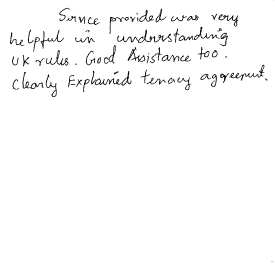 Service provided was very
helpful in understanding
UK rules. Good Assistance too.
Clearly Explained tenacy agreement.